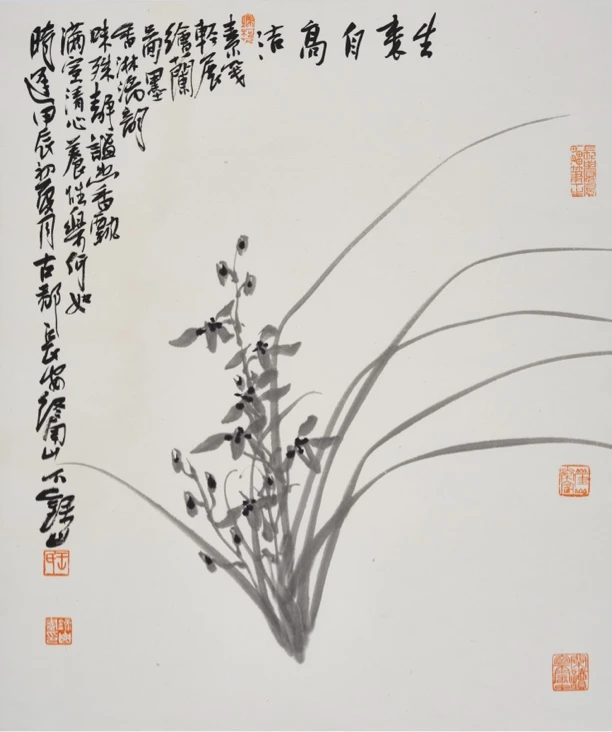 生來自高洁
素箋
輕展
繪蘭
圖墨
香淋漓韻
味殊靜謐幽香飄
滿室清心養性樂何如
時逢甲辰初夏月古都長安終南山下